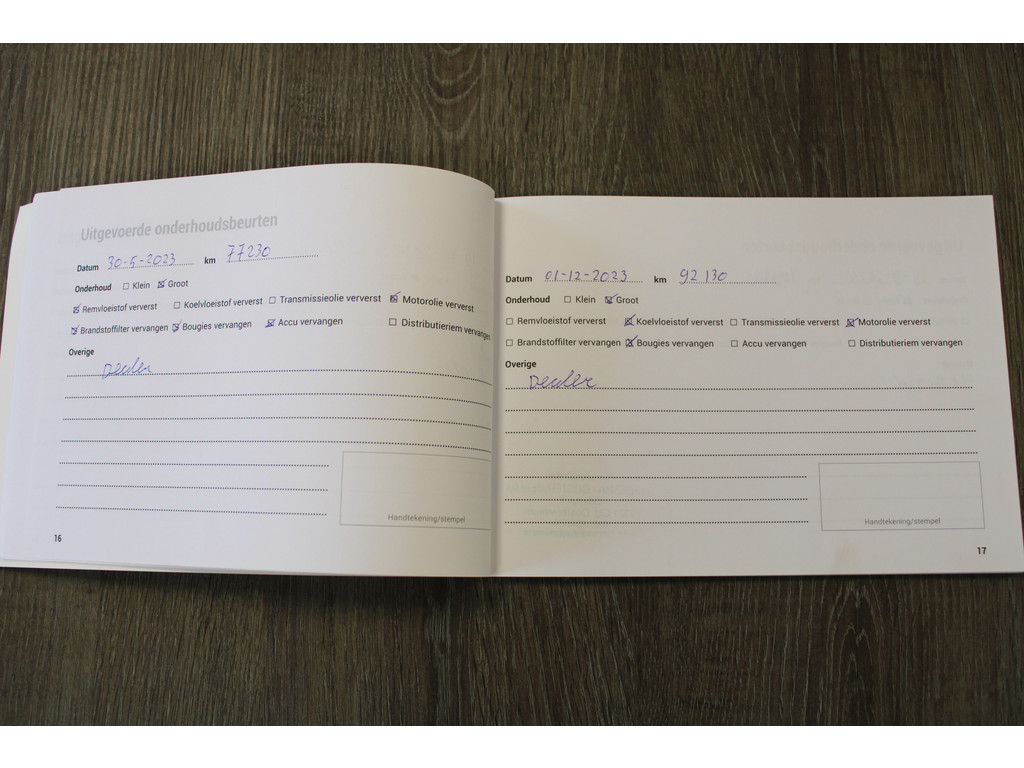 Uitgevoerde onderhoudsbeurten
Datum 30-5-2023 km 77230
Onderhoud ☐ Klein ☒ Groot
☒ Remvloeistof ververst ☐ Koelvloeistof ververst ☐ Transmissieolie ververst ☒ Motorolie ververst
☒ Brandstoffilter vervangen ☒ Bougies vervangen ☒ Accu vervangen ☐ Distributieriem vervangen
Overige
Dealer
Handtekening/stempel
16
Datum 01-12-2023 km 92130
Onderhoud ☐ Klein ☒ Groot
☐ Remvloeistof ververst ☒ Koelvloeistof ververst ☐ Transmissieolie ververst ☒ Motorolie ververst
☐ Brandstoffilter vervangen ☒ Bougies vervangen ☐ Accu vervangen ☐ Distributieriem vervangen
Overige
Dealer
Handtekening/stempel
17